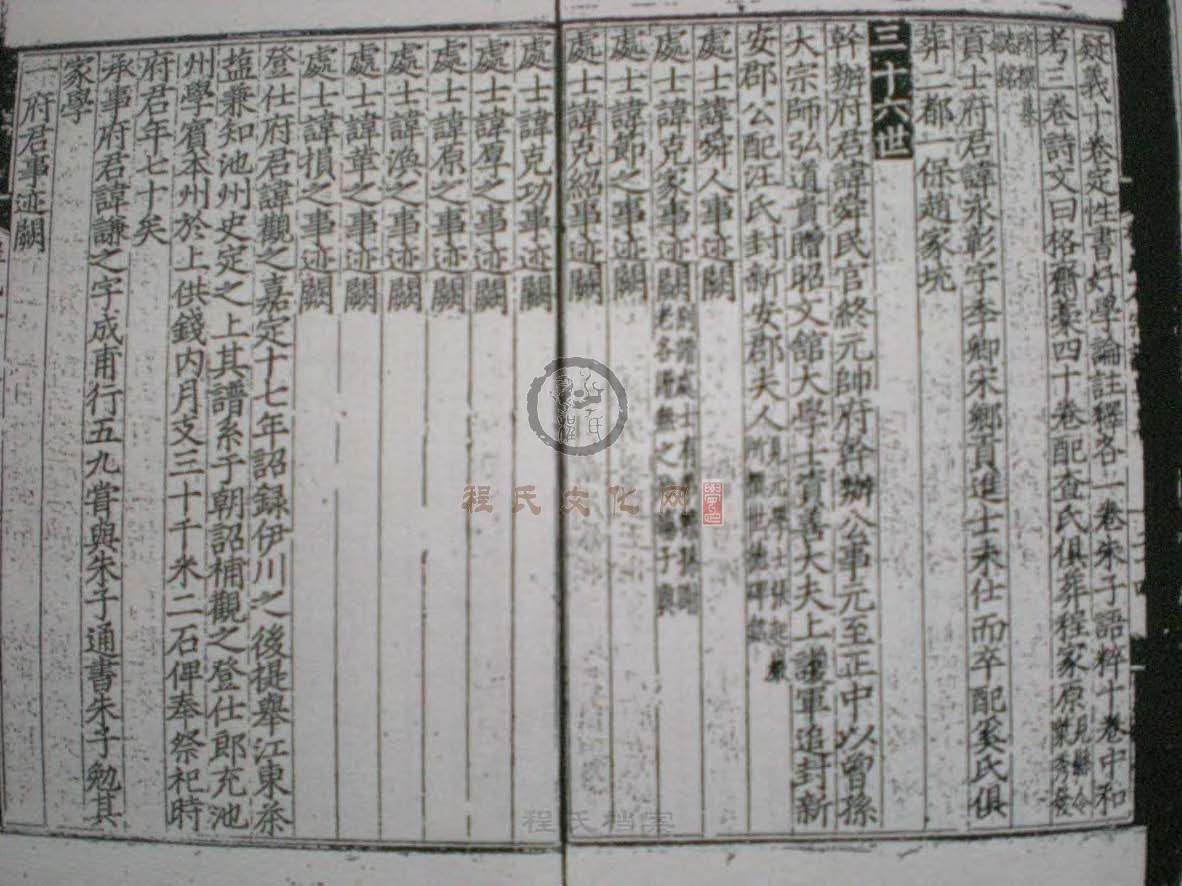 疑義十卷定性書好學論註釋各一卷朱子語粹十卷中和
考三卷詩文曰格齋藁四十卷配查氏俱葬程家原見縣令
所撰墓
誌銘
貢士府君諱永彰字季卿宋鄉貢進士未仕而卒配奚氏俱
葬二都一保趙家坑
三十六世
幹辦府君諱舜民官終元帥府幹辦公事元至正中以曾孫
大宗師弘道貴贈昭文館大學士資善大夫上護軍追封新
安郡公配汪氏封新安郡夫人
處士諱舜人事迹闕
處士諱克家事迹闕
處士諱節之事迹闕
處士諱克紹事迹闕
處士諱克功事迹闕
處士諱厚之事迹闕
處士諱原之事迹闕
處士諱渙之事迹闕
處士諱華之事迹闕
處士諱損之事迹闕
登仕府君諱觀之嘉定十七年詔錄伊川之後提舉江東茶
鹽兼知池州史定之上其譜系于朝詔補觀之登仕郎充池
州學賓本州於上供錢內月支三十千米二石俾奉祭祀時
府君年七十矣
承事府君諱謙之字成甫行五九嘗與朱子通書朱子勉其
家學
一府君事迹闕
程氏文化网
程氏档案